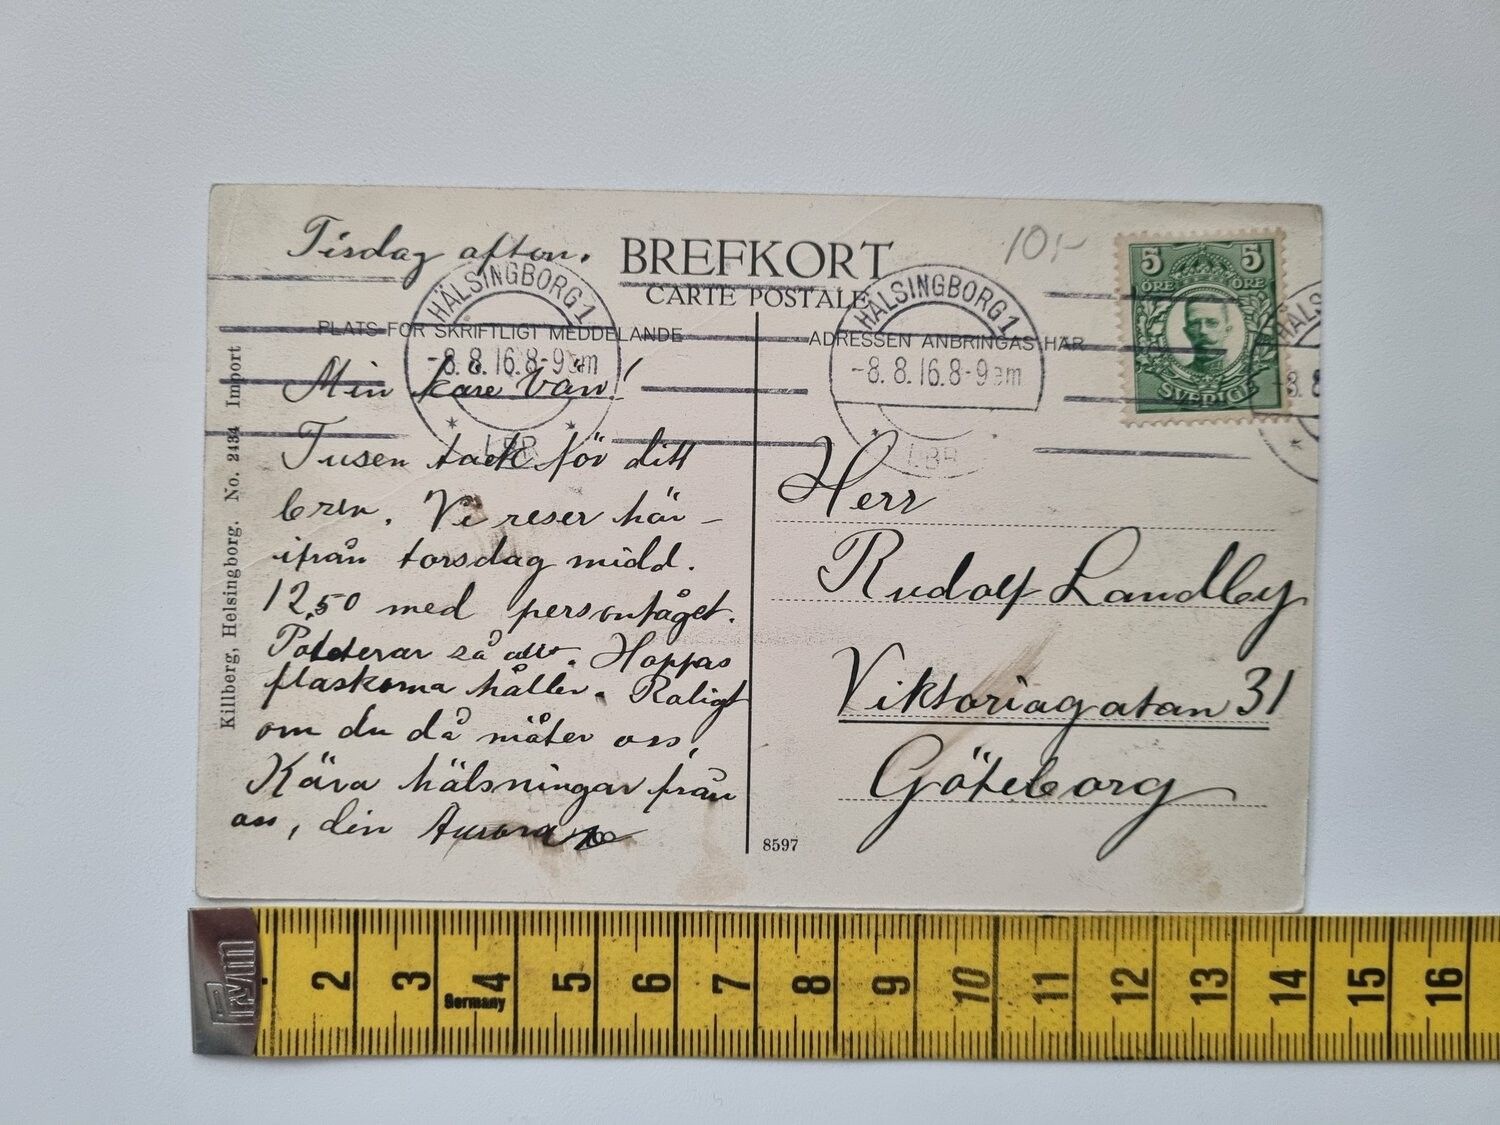 Tisdag afton.
BREFKORT
CARTE POSTALE
10:-
5 5
ÖRE ÖRE
SVERIGE
HÄLSINGBORG 1
-8.8.16.8-9
LBR
HÄLSINGBORG 1
-8.8.16.8-9 em
LBR
HÄLS
-8.8
PLATS FÖR SKRIFTLIGT MEDDELANDE
ADRESSEN ANBRINGAS HÄR
Min käre Vän!
Tusen tack för ditt
brev. Vi reser här-
ifrån torsdag midd.
12,50 med persontåget.
så Hoppas
flaskorna håller. Roligt
om du då möter oss.
Kära hälsningar från
oss, din Aurora
Herr
Rudolf Landby
Viktoriagatan 31
Göteborg
Killberg, Helsingborg. No. 2434 Import
8597
Prym
Germany
2 3 4 5 6 7 8 9 10 11 12 13 14 15 16